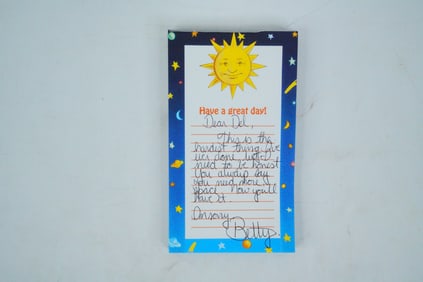 Have a great day!
Dear Del,
This is the
hardest thing I've
ever done, but I
need to be honest.
You always say
you need more
space. Now you'll
have it.
I'm sorry,
Betty